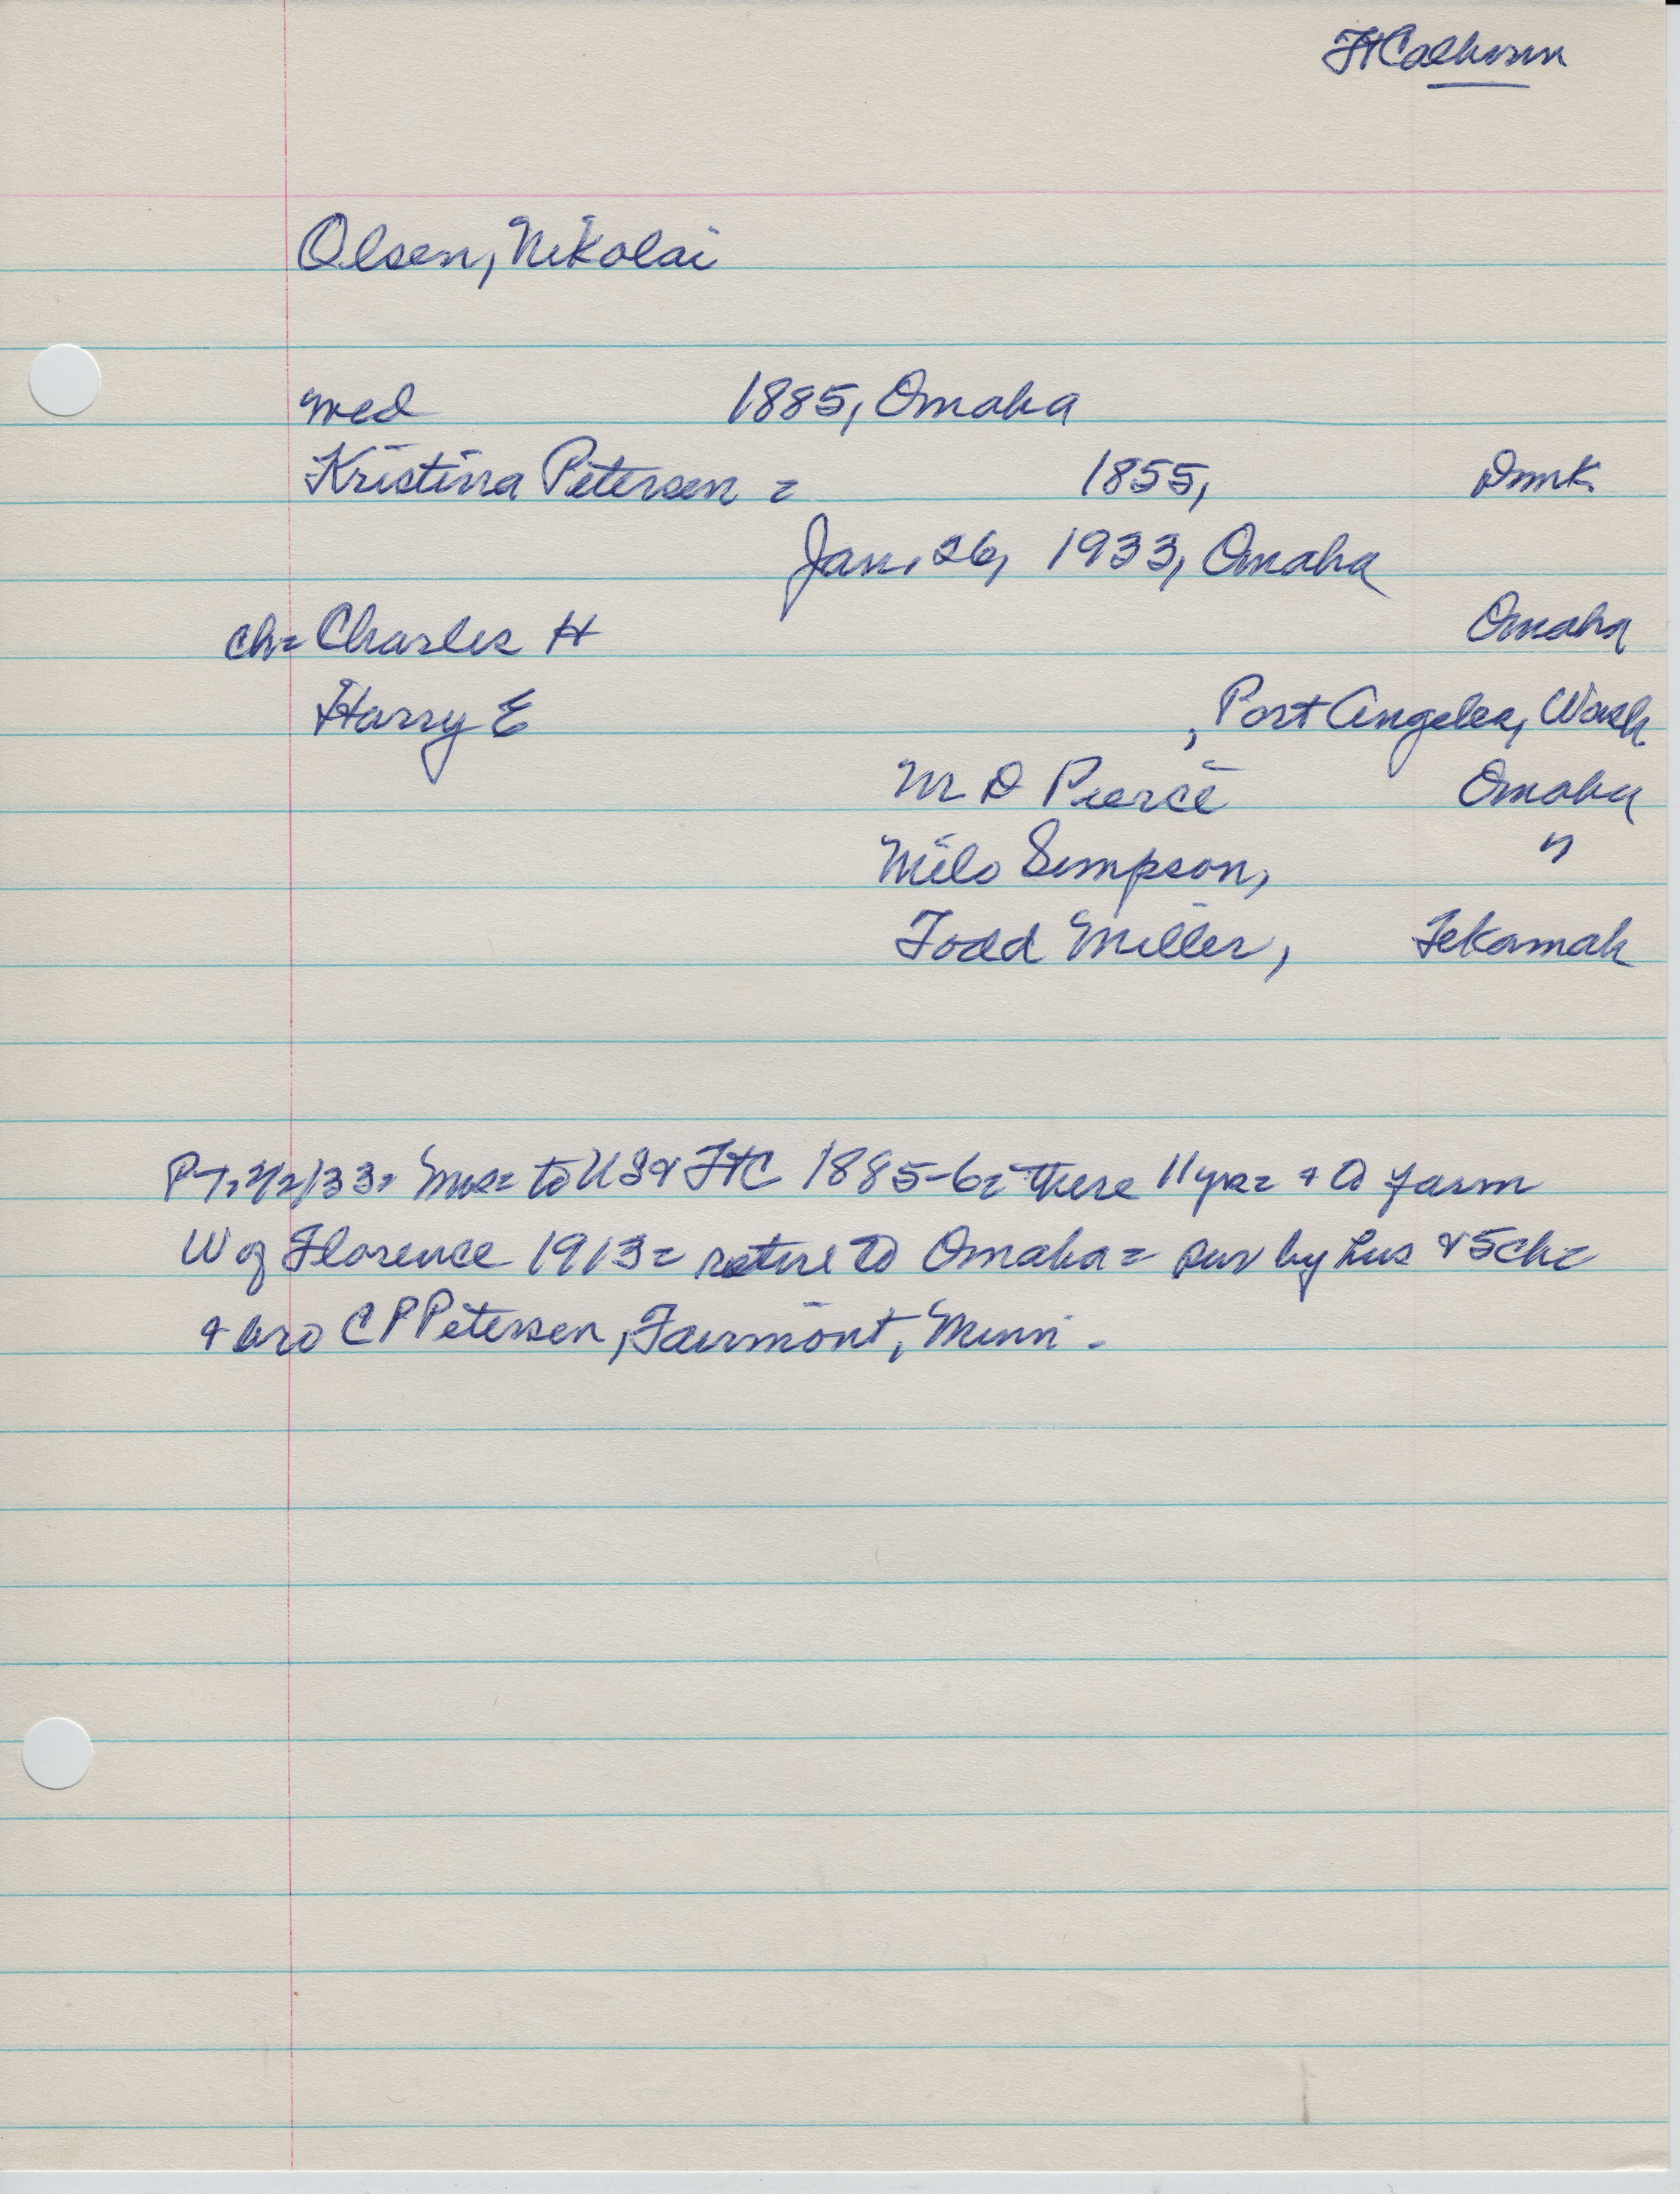 Ft Calhoun
Olsen, Nikolai
med 1885, Omaha
Kristina Petersen = 1855, Dnmk
Jan. 26, 1933, Omaha
ch= Charles H Omaha
Harry E , Port Angeles, Wash
M D Pierce Omaha
Milo Simpson, "
Todd Miller, Tekamah
PT, 2/2/33= Mrs= to US & FtC 1885-6= there 11 yrs= & to farm
W of Florence 1913= retire to Omaha= sur by hus & 5ch=
& bro C P Petersen, Fairmont, Minn.